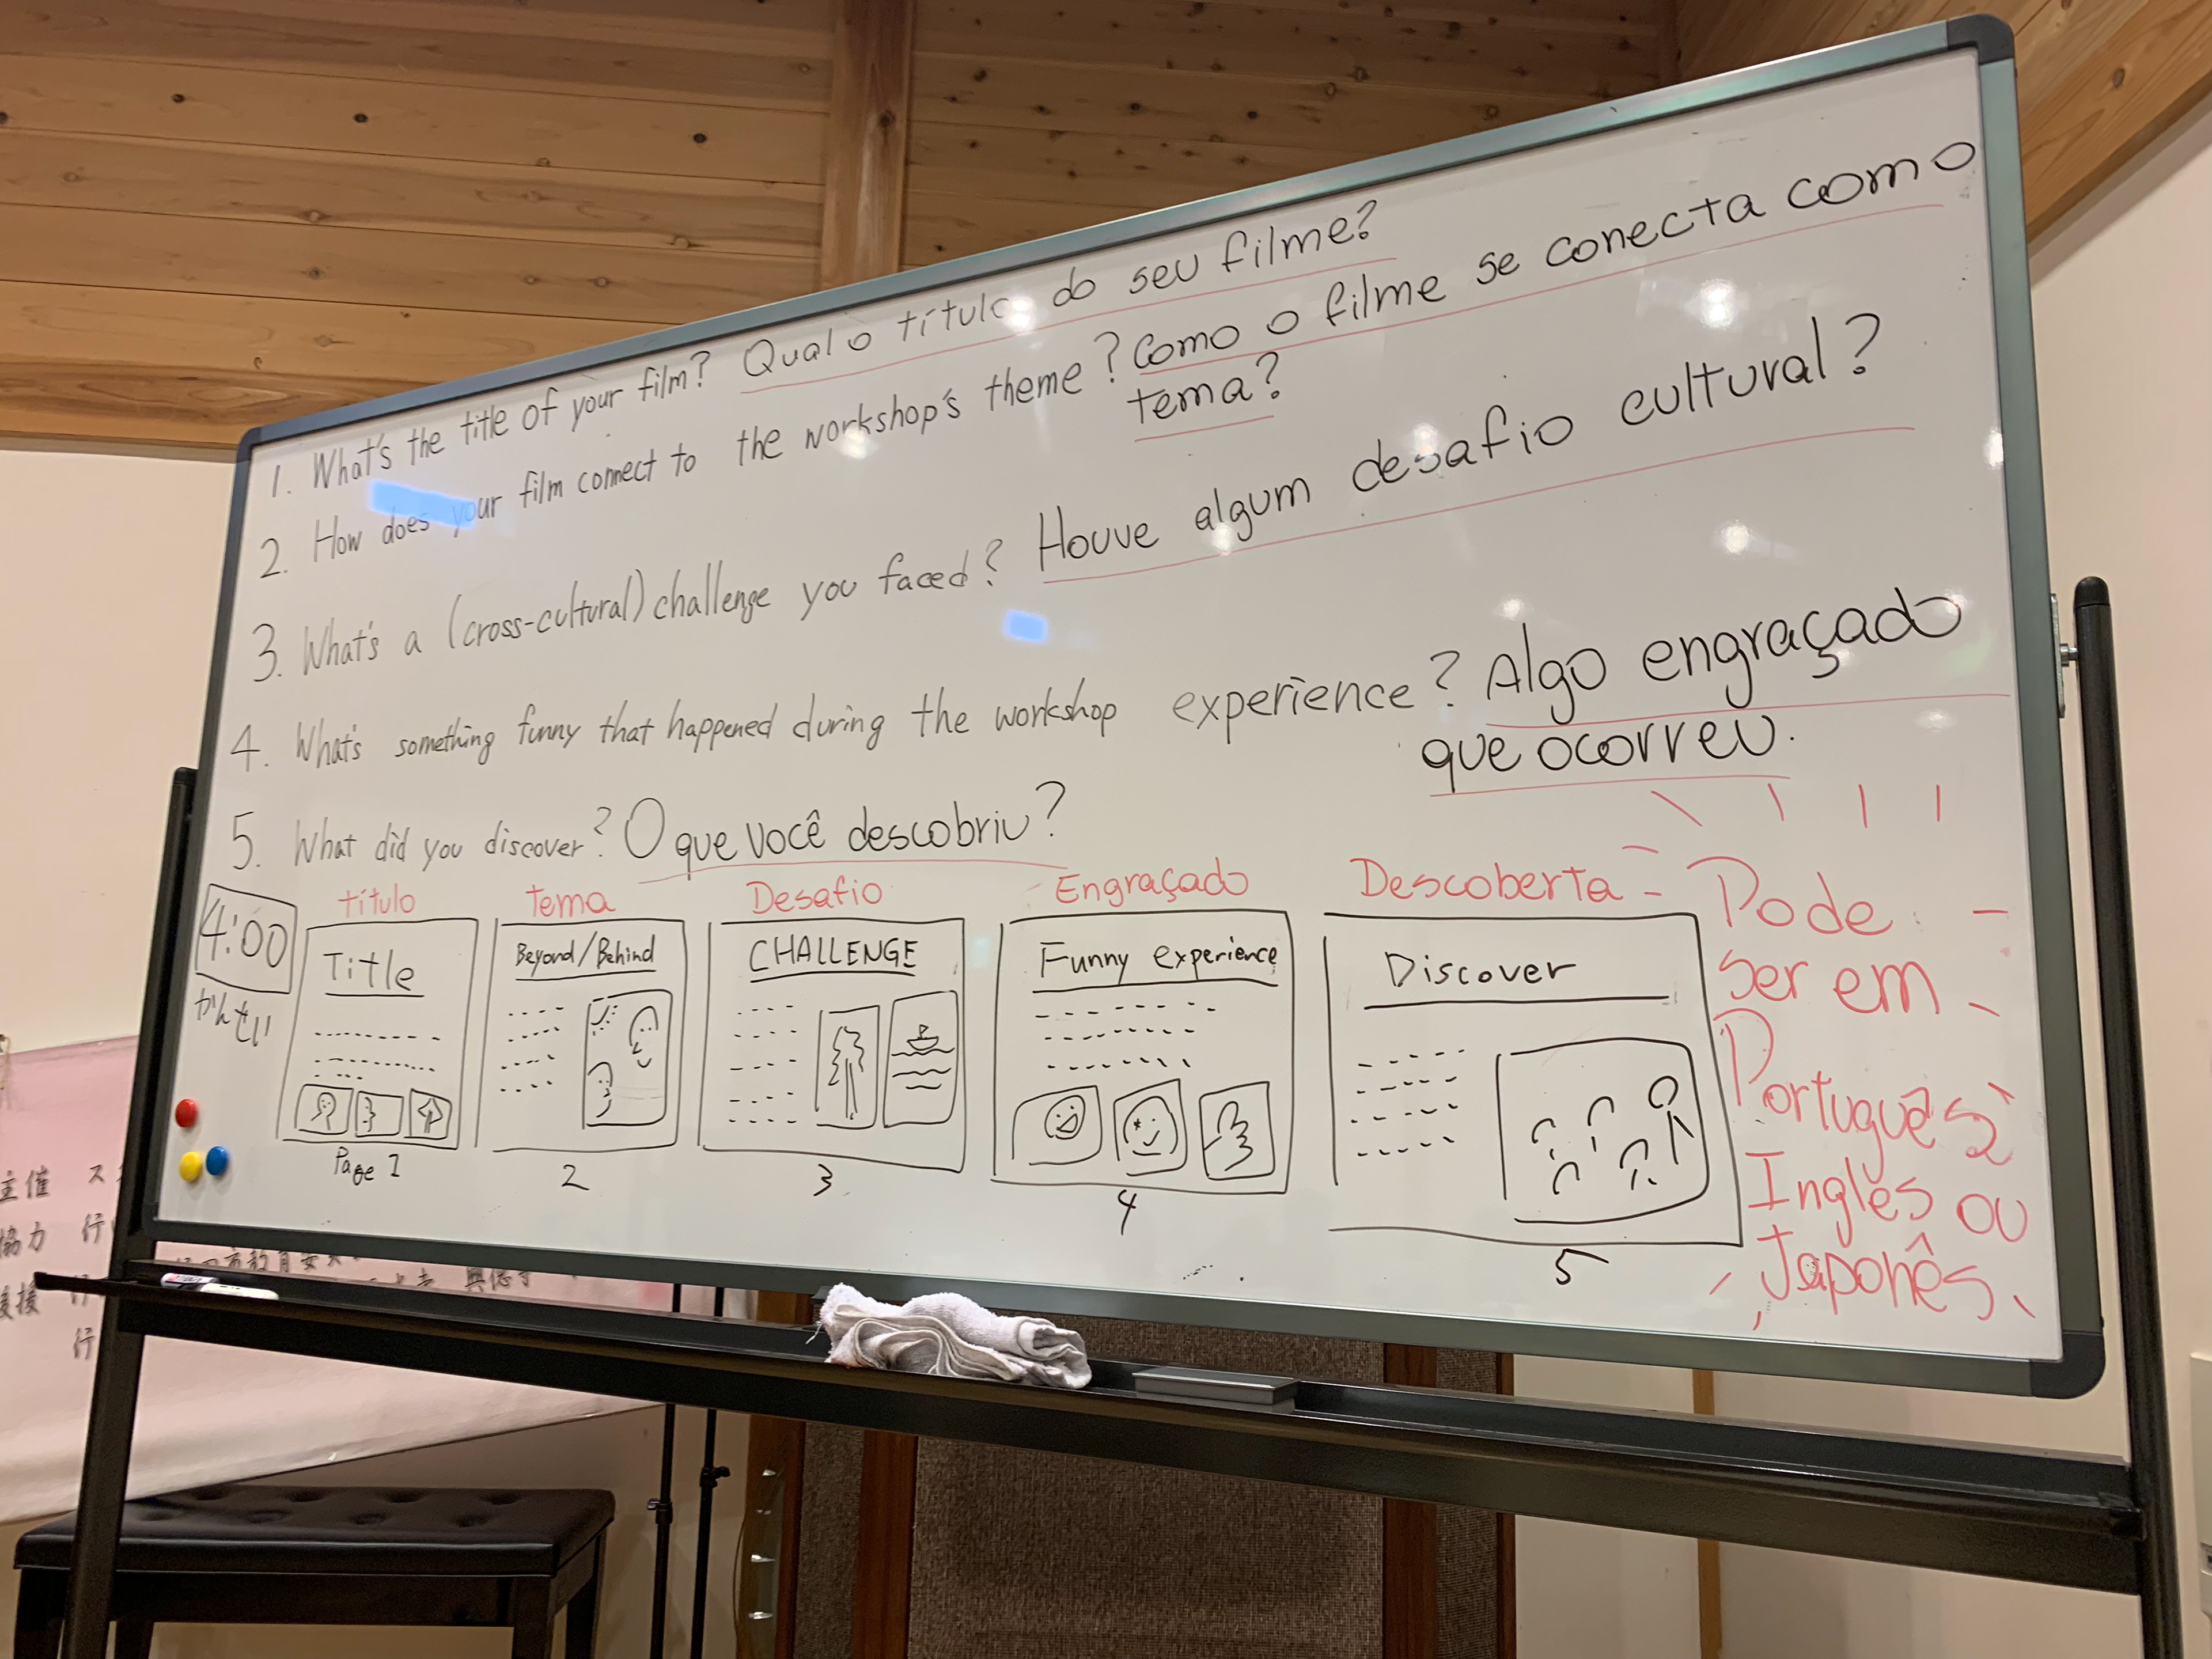 1. What's the title of your film? Qual o título do seu filme?
2. How does your film connect to the workshop's theme? Como o filme se conecta como
tema?
3. What's a (cross-cultural) challenge you faced? Houve algum desafio cultural?
4. What's something funny that happened during the workshop experience? Algo engraçado
que ocorreu.
5. What did you discover? O que você descobriu?
4:00
かんせい
título
Title
Page 1
Tema
Beyond/Behind
2
Desafio
CHALLENGE
3
Engraçado
Funny experience
4
Descoberta
Discover
5
Pode
ser em
Português
Inglês ou
Japonês
主催
協力 行
後援 行
行